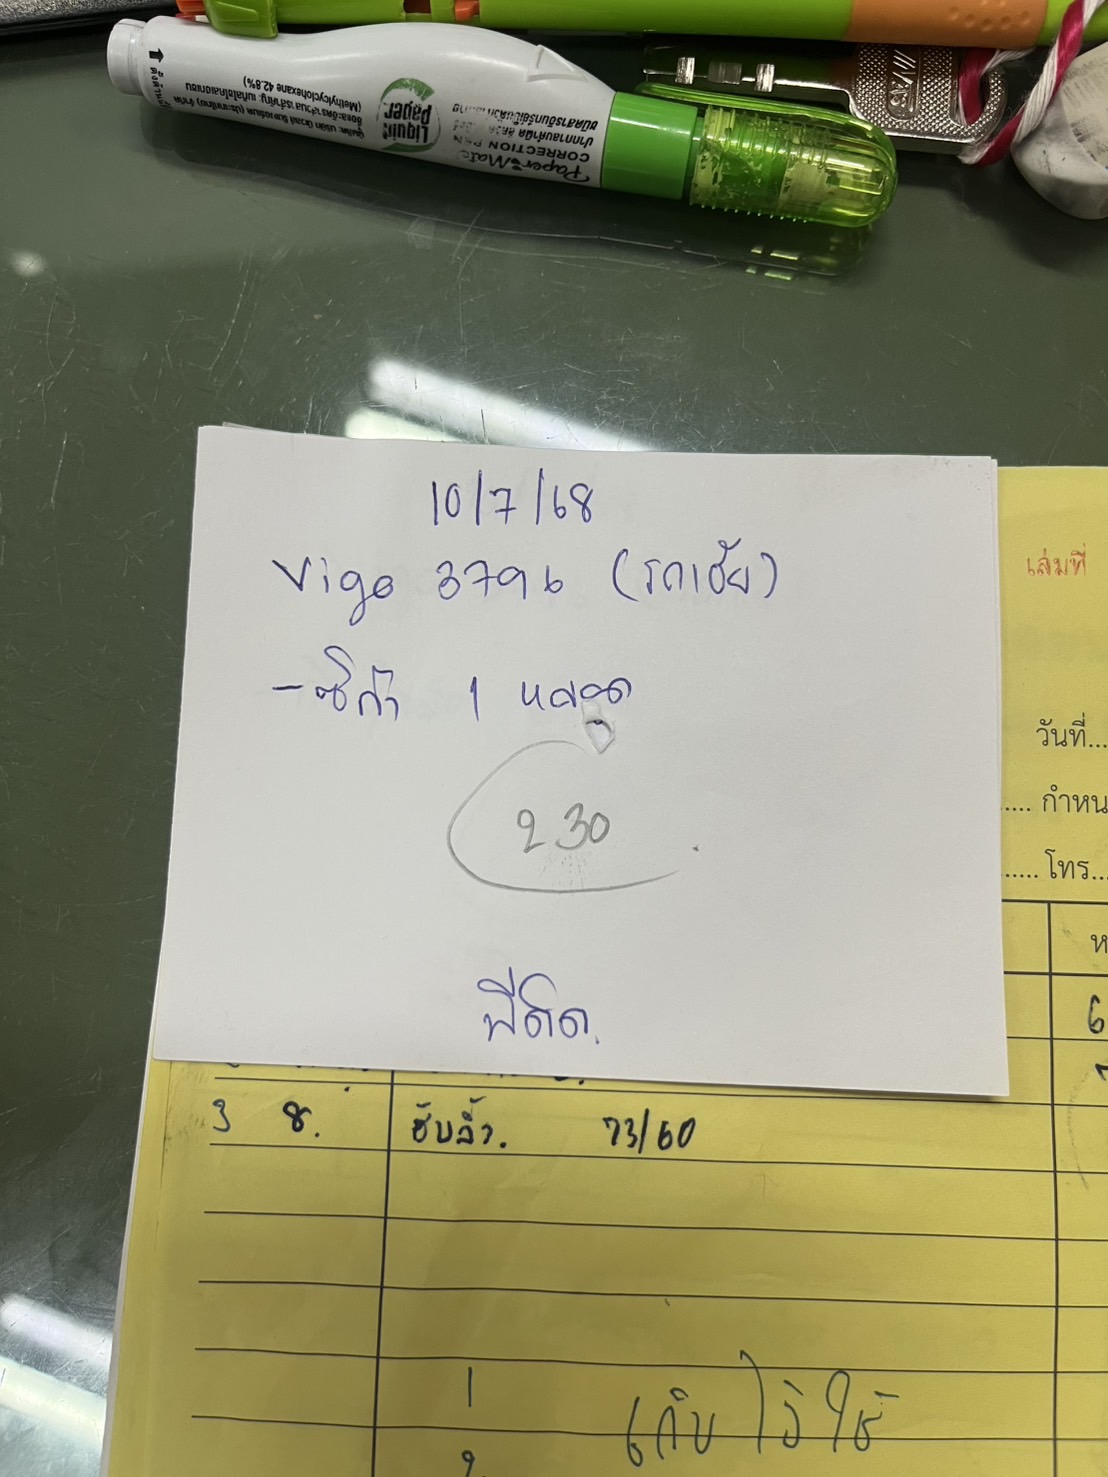 Paper Mate
CORRECTION PEN
Liquid Paper
(Methylcyclohexane 42.8%)
10/7/68
Vigo 3796 (รถเฮีย)
- ซิก้า 1 หลอด
230
พี่ติด.
เล่มที่
วันที่...
.... กำหน
..... โทร...
ห
6
3 8. ฮับลิ้ว. 73/60
1
เก็บไว้ใช้
2.